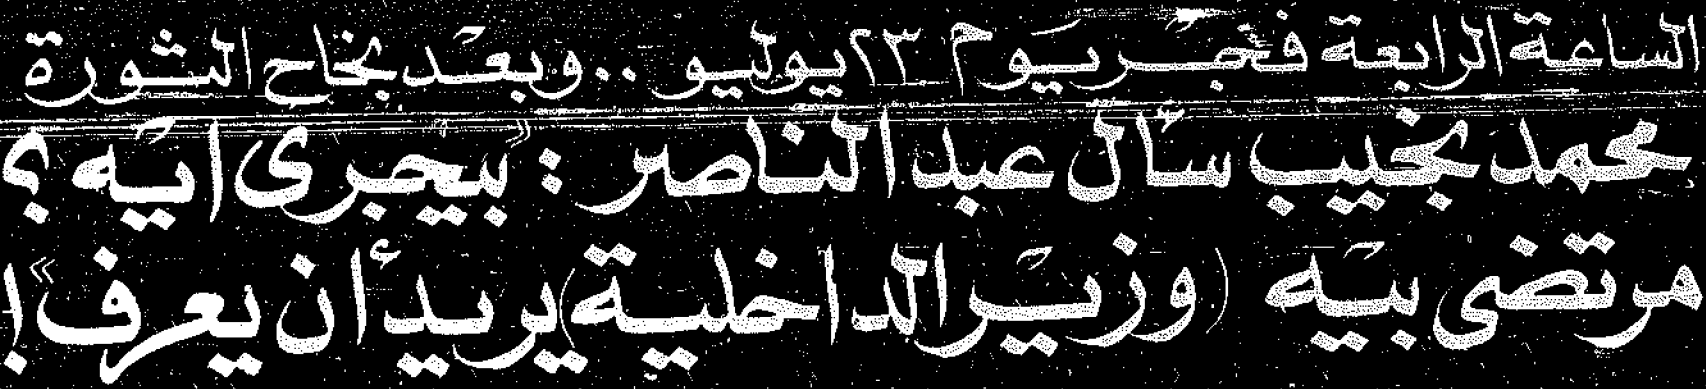 الساعة الرابعة فجر يوم ٢٣ يوليو .. وبعد نجاح الثورة
محمد نجيب سأل عبد الناصر : «بيجرى ايه ؟
مرتضى بيه (وزير الداخلية) يريد أن يعرف» !